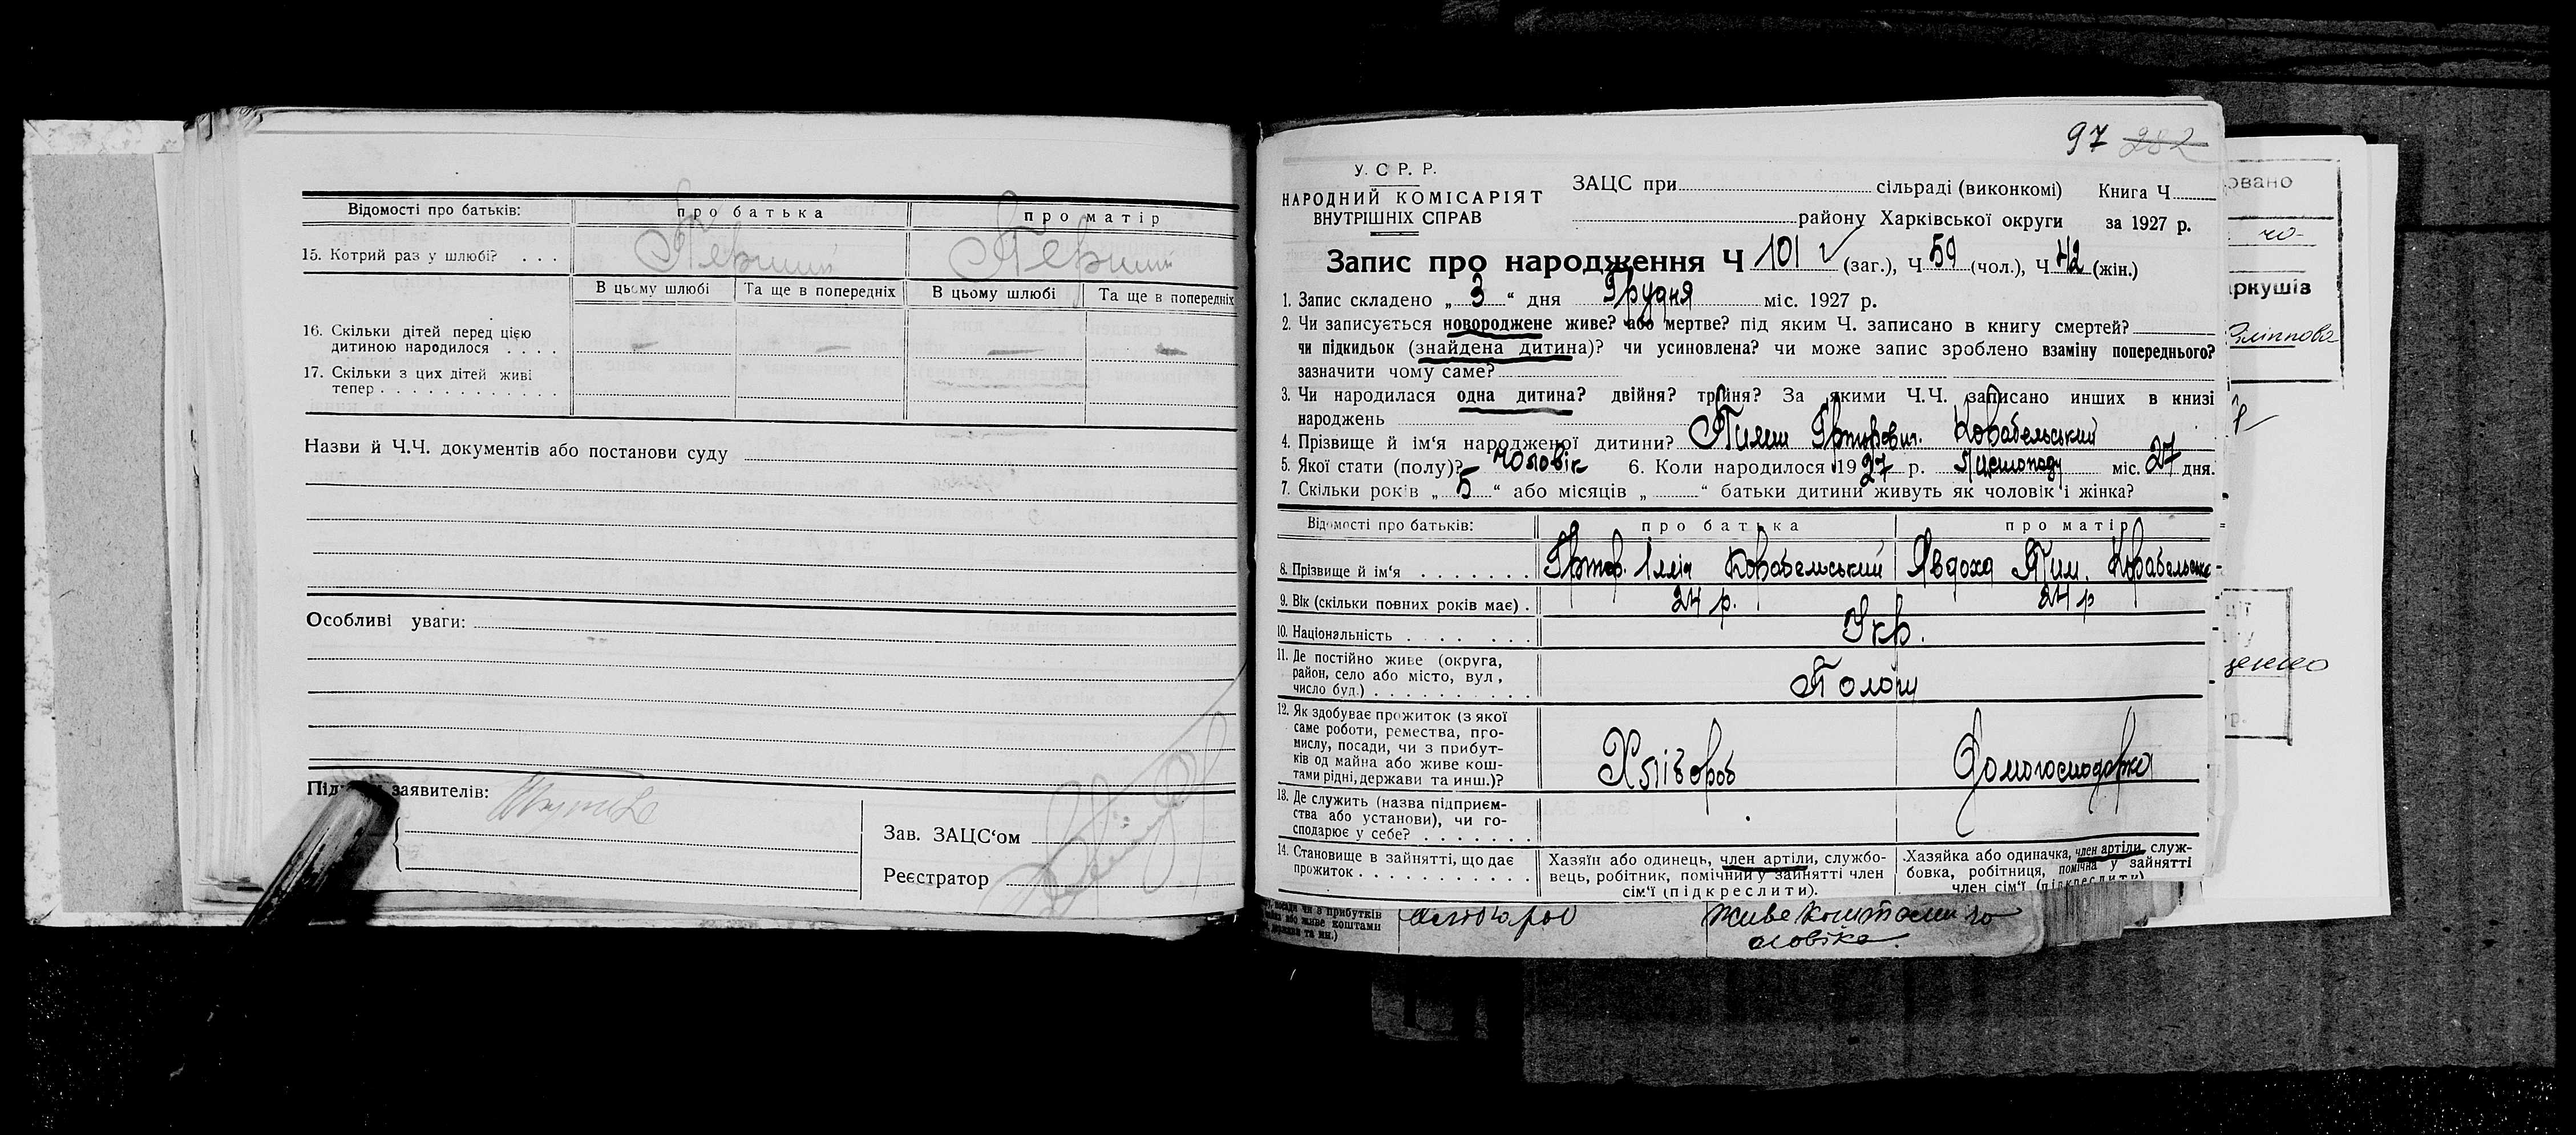 Відомості про батьків: про батька про матір
15. Котрий раз у шлюбі? . . . Перший Перший
В цьому шлюбі Та ще в попередніх В цьому шлюбі Та ще в попередніх
16. Скільки дітей перед цією
дитиною народилося . . . . — — — —
17. Скільки з цих дітей живі
тепер . . . . . . . . . . . .
Назви й Ч.Ч. документів або постанови суду
Особливі уваги:
заявителів:
Зав. ЗАЦС‘ом
Реєстратор
97 282
У. С Р. Р.
НАРОДНИЙ КОМІСАРІЯТ
ВНУТРІШНІХ СПРАВ
ЗАЦС при сільраді (виконкомі) Книга Ч
району Харківської округи за 1927 р.
Запис про народження Ч 101 (заг.), Ч 59 (чол.), Ч 42 (жін.)
1. Запис складено „ 3 “ дня Грудня міс. 1927 р.
2. Чи записується новороджене живе? або мертве? під яким Ч. записано в книгу смертей?
чи підкидьок (знайдена дитина)? чи усиновлена? чи може запис зроблено взаміну попереднього?
зазначити чому саме?
3. Чи народилася одна дитина? двійня? трійня? За якими Ч.Ч. записано инших в книзі
народжень
4. Прізвище й ім‘я народженої дитини?
5. Якої стати (полу)? Чоловік 6. Коли народилося 1927 р. Листопаду міс. 27 дня.
7. Скільки років „ 5 “ або місяців „ “ батьки дитини живуть як чоловік і жінка?
Відомості про батьків: про батька про матір
8. Прізвище й ім‘я . . . . . . . Ілля Явдоха Тим.
9. Вік (скільки повних років має) . 24 р. 24 р
10. Національність . . . . . . . Укр.
11. Де постійно живе (округа,
район, село або місто, вул,
число буд.) . . . . . . . . . .
12. Як здобуває прожиток (з якої
саме роботи, ремества, про-
мислу, посади, чи з прибут-
ків од майна або живе кош-
тами рідні, держави та инш.)? Хлібороб Домогосподарка
13. Де служить (назва підприєм-
ства або установи), чи го-
сподарює у себе? . . . . . . .
14. Становище в зайнятті, що дає
прожиток . . . . . . . . . . .
Хазяїн або одинець, член артіли, службо-
вець, робітник, помічний у зайнятті член
сім‘ї (підкреслити).
Хазяйка або одиначка, член артіли, служ-
бовка, робітниця, помічна у зайнятті
член сім‘ї (підкреслити)
посади чи з прибутків
або живе коштами
держави та ин.)
живе коштами чо
ловіка.
овано
аркушів